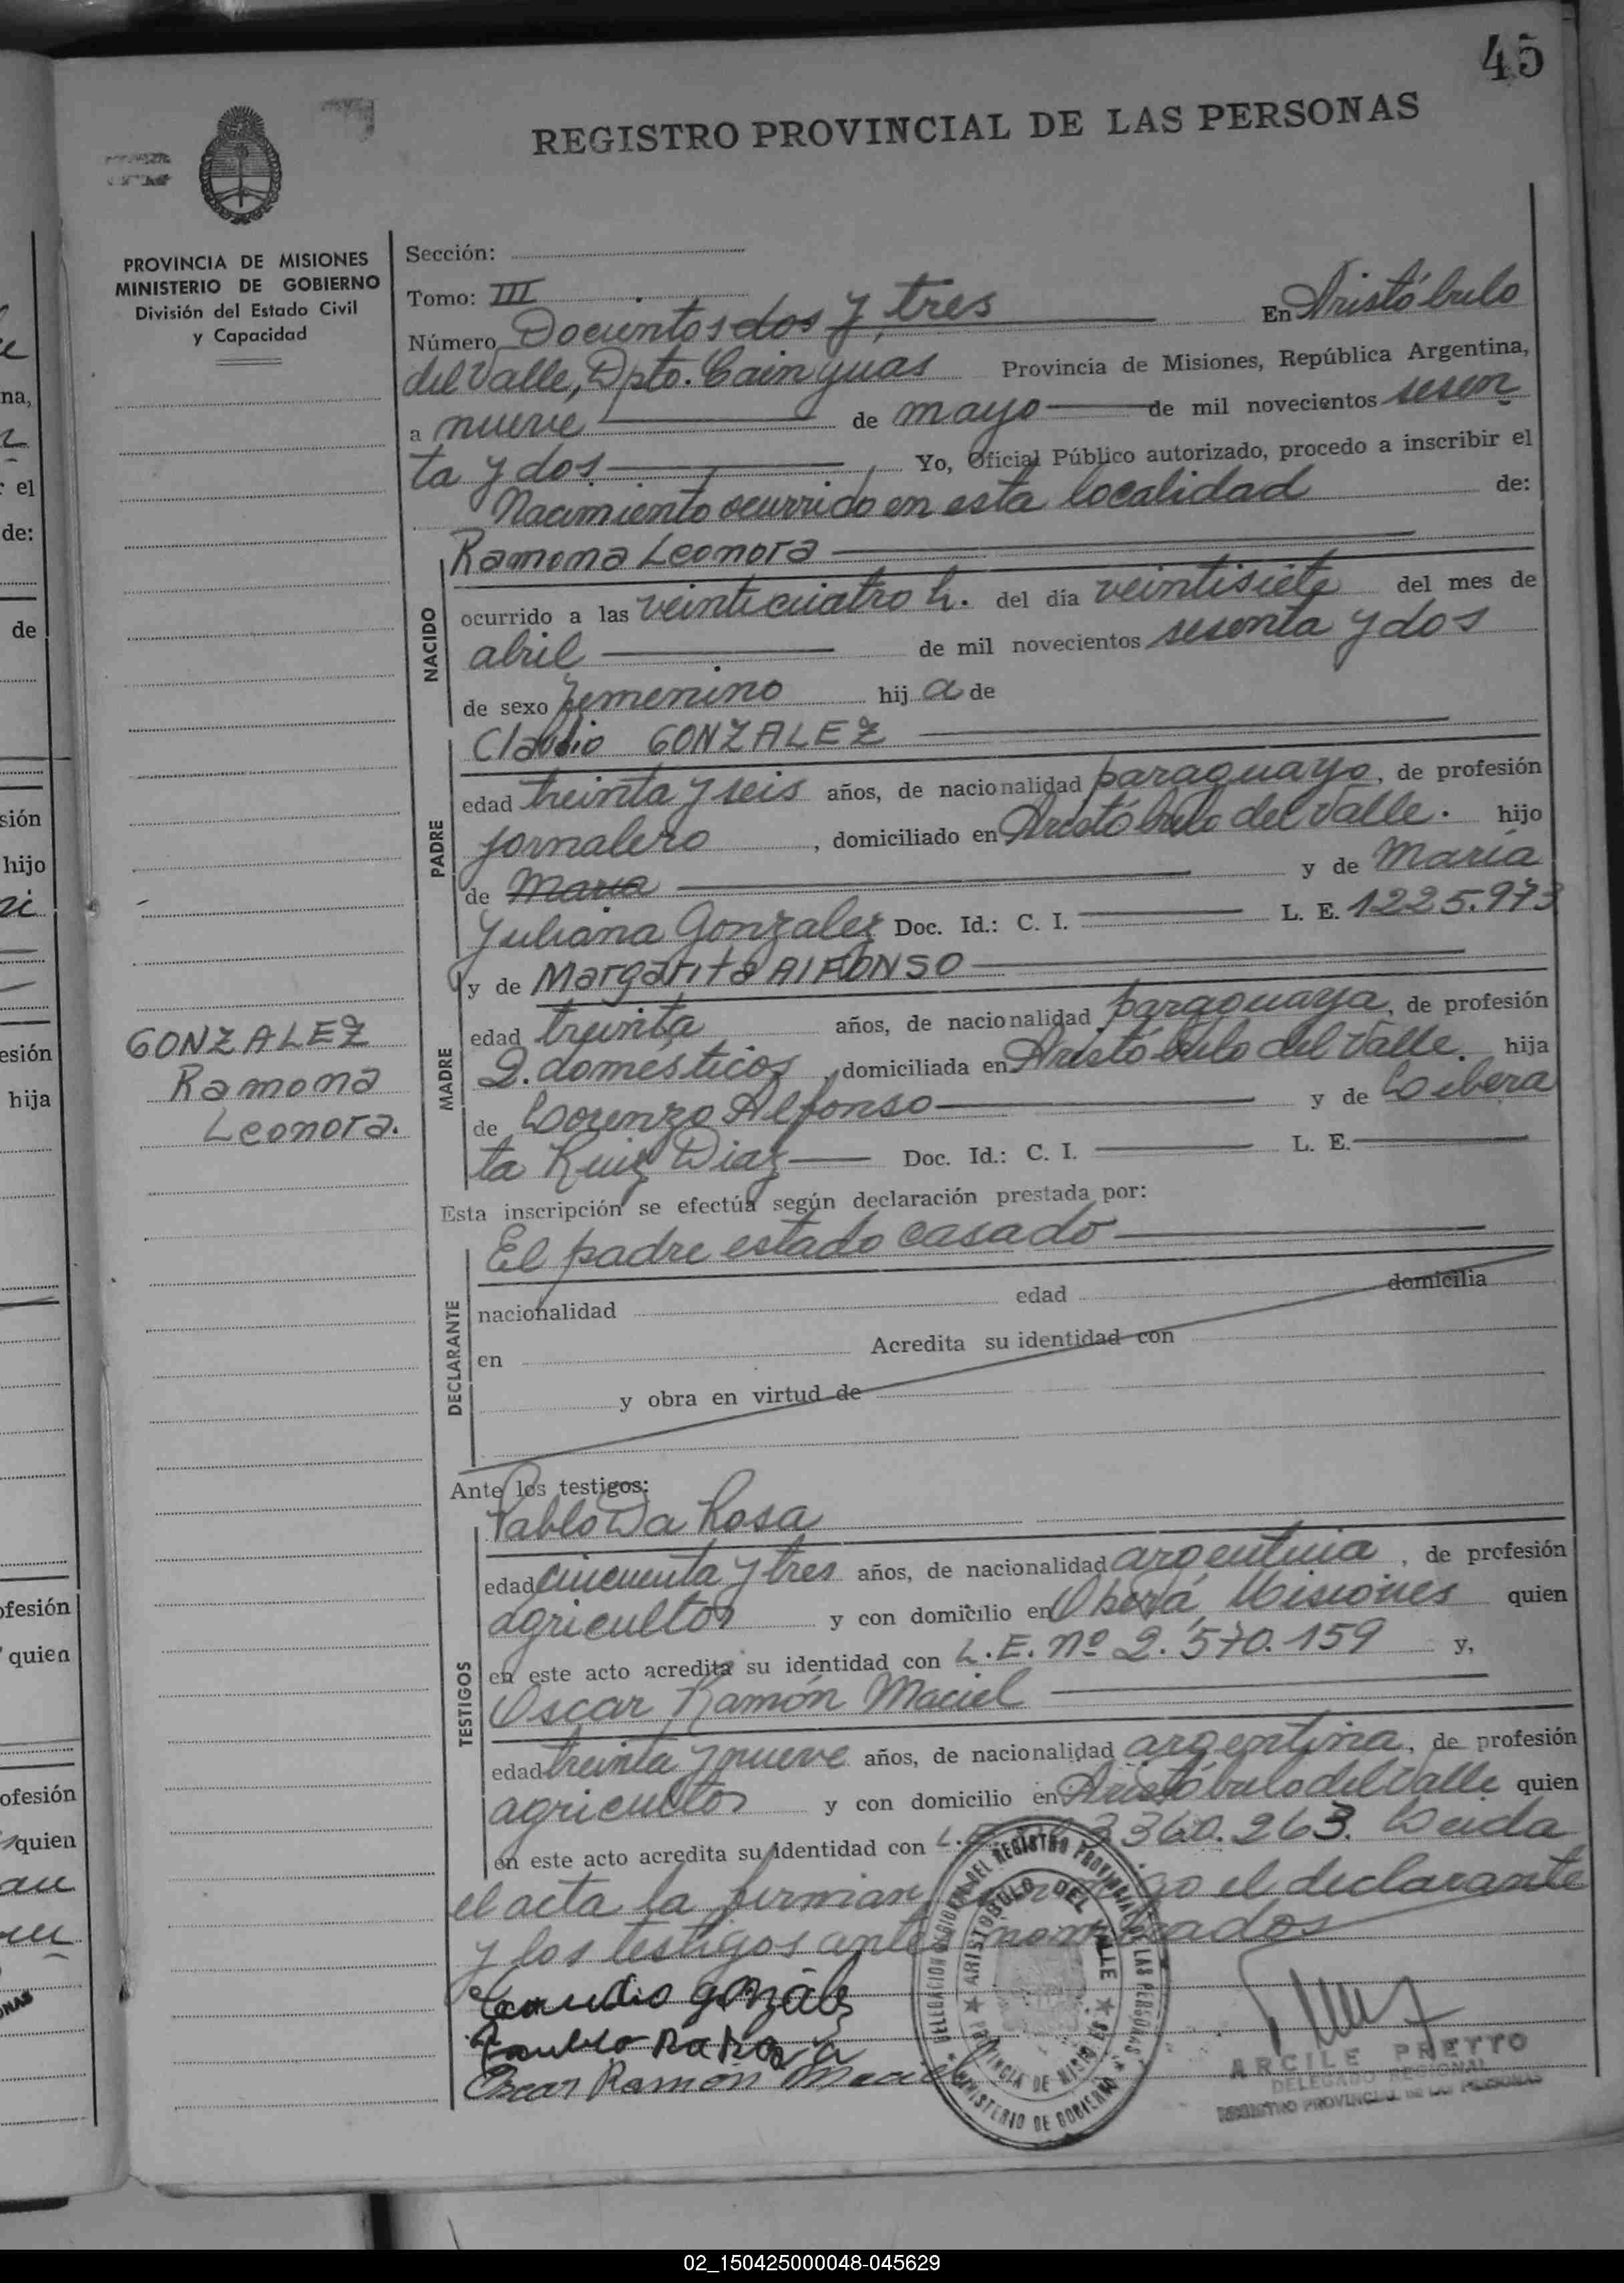 45
REGISTRO PROVINCIAL DE LAS PERSONAS
PROVINCIA DE MISIONES
MINISTERIO DE GOBIERNO
División del Estado Civil
y Capacidad
Sección:
Tomo: III
Número Docuintos dos y tres En Aristóbulo
del Valle, Dpto. Cainguas Provincia de Misiones, República Argentina,
a nueve de mayo de mil novecientos sesen
ta y dos Yo, Oficial Público autorizado, procedo a inscribir el
Nacimiento ocurrido en esta localidad de:
NACIDO
Ramona Leonora
ocurrido a las veinticuatro h. del día veintisiete del mes de
abril de mil novecientos sesenta y dos
de sexo femenino hij a de
PADRE
Claudio GONZALEZ
edad treinta y seis años, de nacionalidad paraguayo, de profesión
jornalero, domiciliado en Aristóbulo del Valle. hijo
de Maria y de María
Juliana Gonzalez Doc. Id.: C. I. L. E. 1225.973
MADRE
y de Margarita AlFONSO
edad treinta años, de nacionalidad paraguaya, de profesión
Q. domésticos, domiciliada en Aristóbulo del Valle. hija
de Lorenzo Alfonso y de Libera
ta Ruiz Diaz Doc. Id.: C. I. L. E.
GONZALEZ
Ramona
Leonora.
Esta inscripción se efectúa según declaración prestada por:
DECLARANTE
El padre estado casado
nacionalidad edad domicilia
en Acredita su identidad con
y obra en virtud de
Ante los testigos:
TESTIGOS
Pablo Da Rosa
edad cincuenta y tres años, de nacionalidad argentina, de profesión
agricultor y con domicilio en Oberá, Misiones quien
en este acto acredita su identidad con L.E. Nº 2.570.159 y,
Oscar Ramón Maciel
edad treinta y nueve años, de nacionalidad argentina, de profesión
agricultor y con domicilio en Aristóbulo del Valle quien
en este acto acredita su identidad con 3360.263. Leida
el acta la firman el declarante
y los testigos ante nombrados
Claudio González
Oscar Ramón Maciel
DEL REGISTRO PROVINCIAL DE LAS PERSONAS
MINISTERIO DE GOBIERNO
ARISTOBULO DEL VALLE
PROVINCIA DE MISIONES
ARCILE PREYTO
DELEGADO REGIONAL
REGISTRO PROVINCIAL DE LAS PERSONAS
na,
el
de:
de
sión
hijo
esión
hija
ofesión
quien
ofesión
quien
02_150425000048-045629